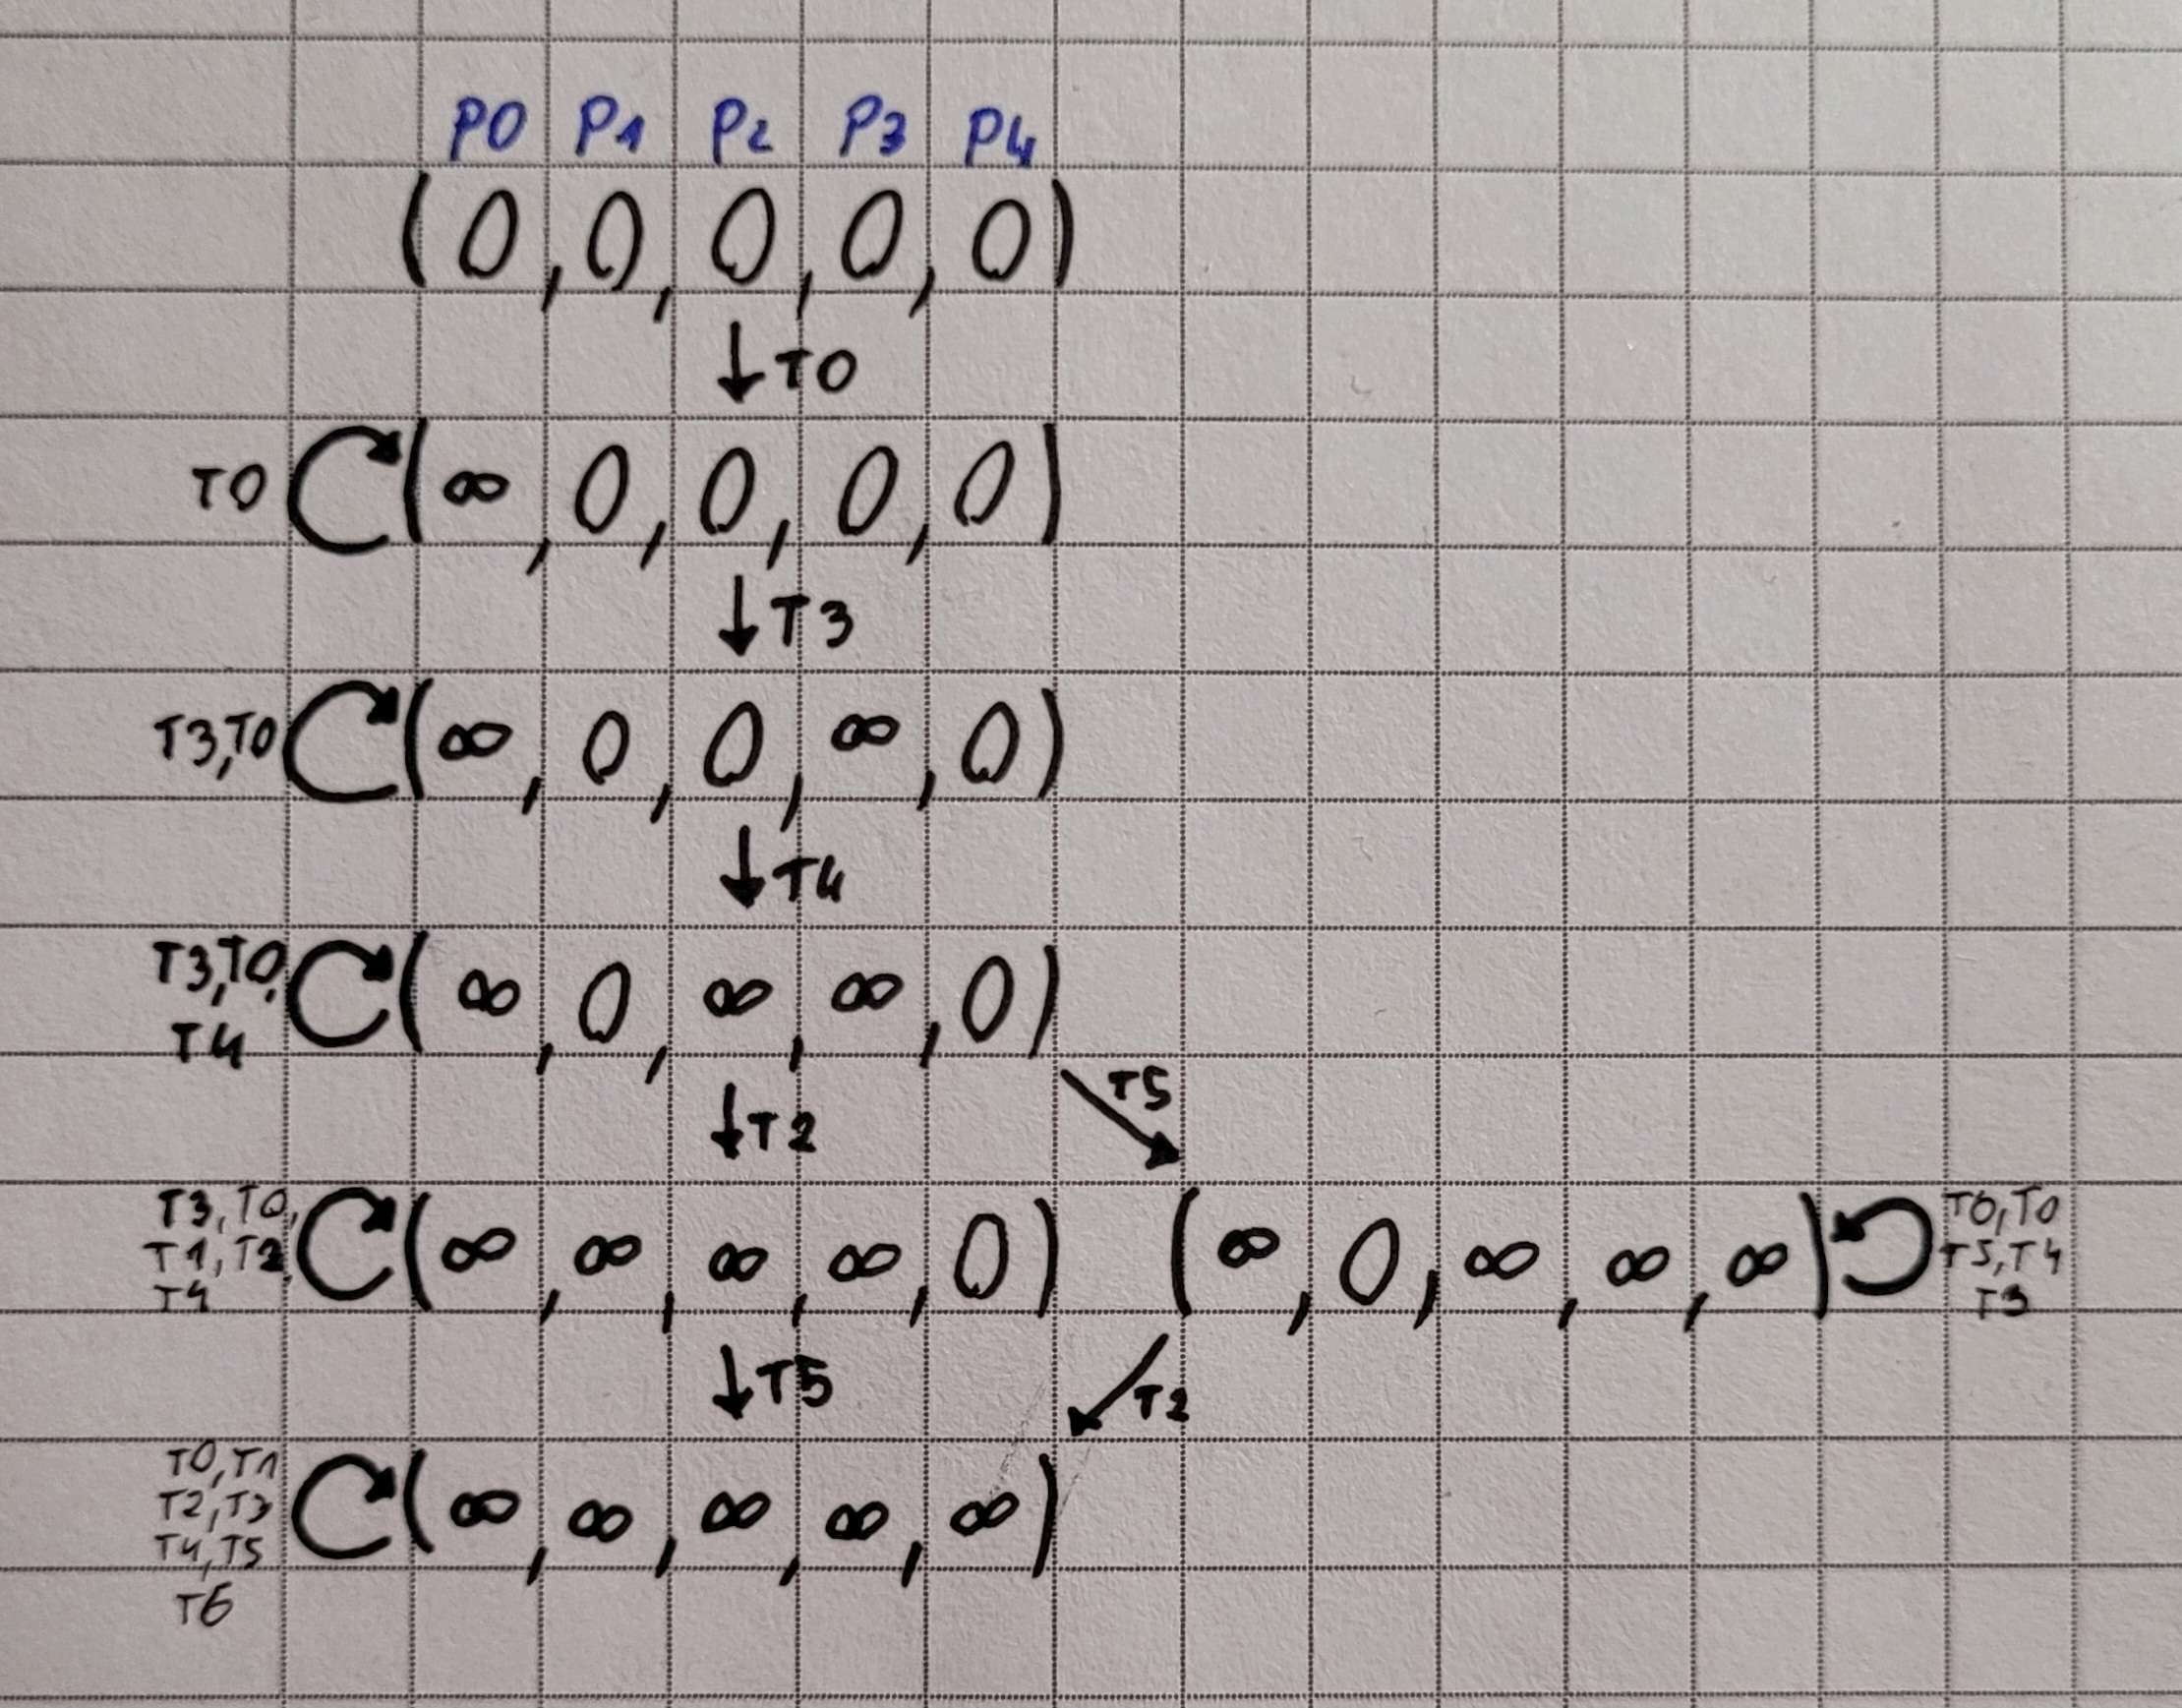 P0 P1 P2 P3 P4
(0,0,0,0,0)
↓T0
T0 (∞,0,0,0,0)
↓T3
T3,T0 (∞,0,0,∞,0)
↓T4
T3,T0,
T4
(∞,0,∞,∞,0)
↓T2
T5
T3,T0,
T1,T2,
T4
(∞,∞,∞,∞,0)
(∞,0,∞,∞,∞)
T0
T5,T4
T3
↓T5
T2
T0,T1
T2,T3
T4,T5
T6
(∞,∞,∞,∞,∞)